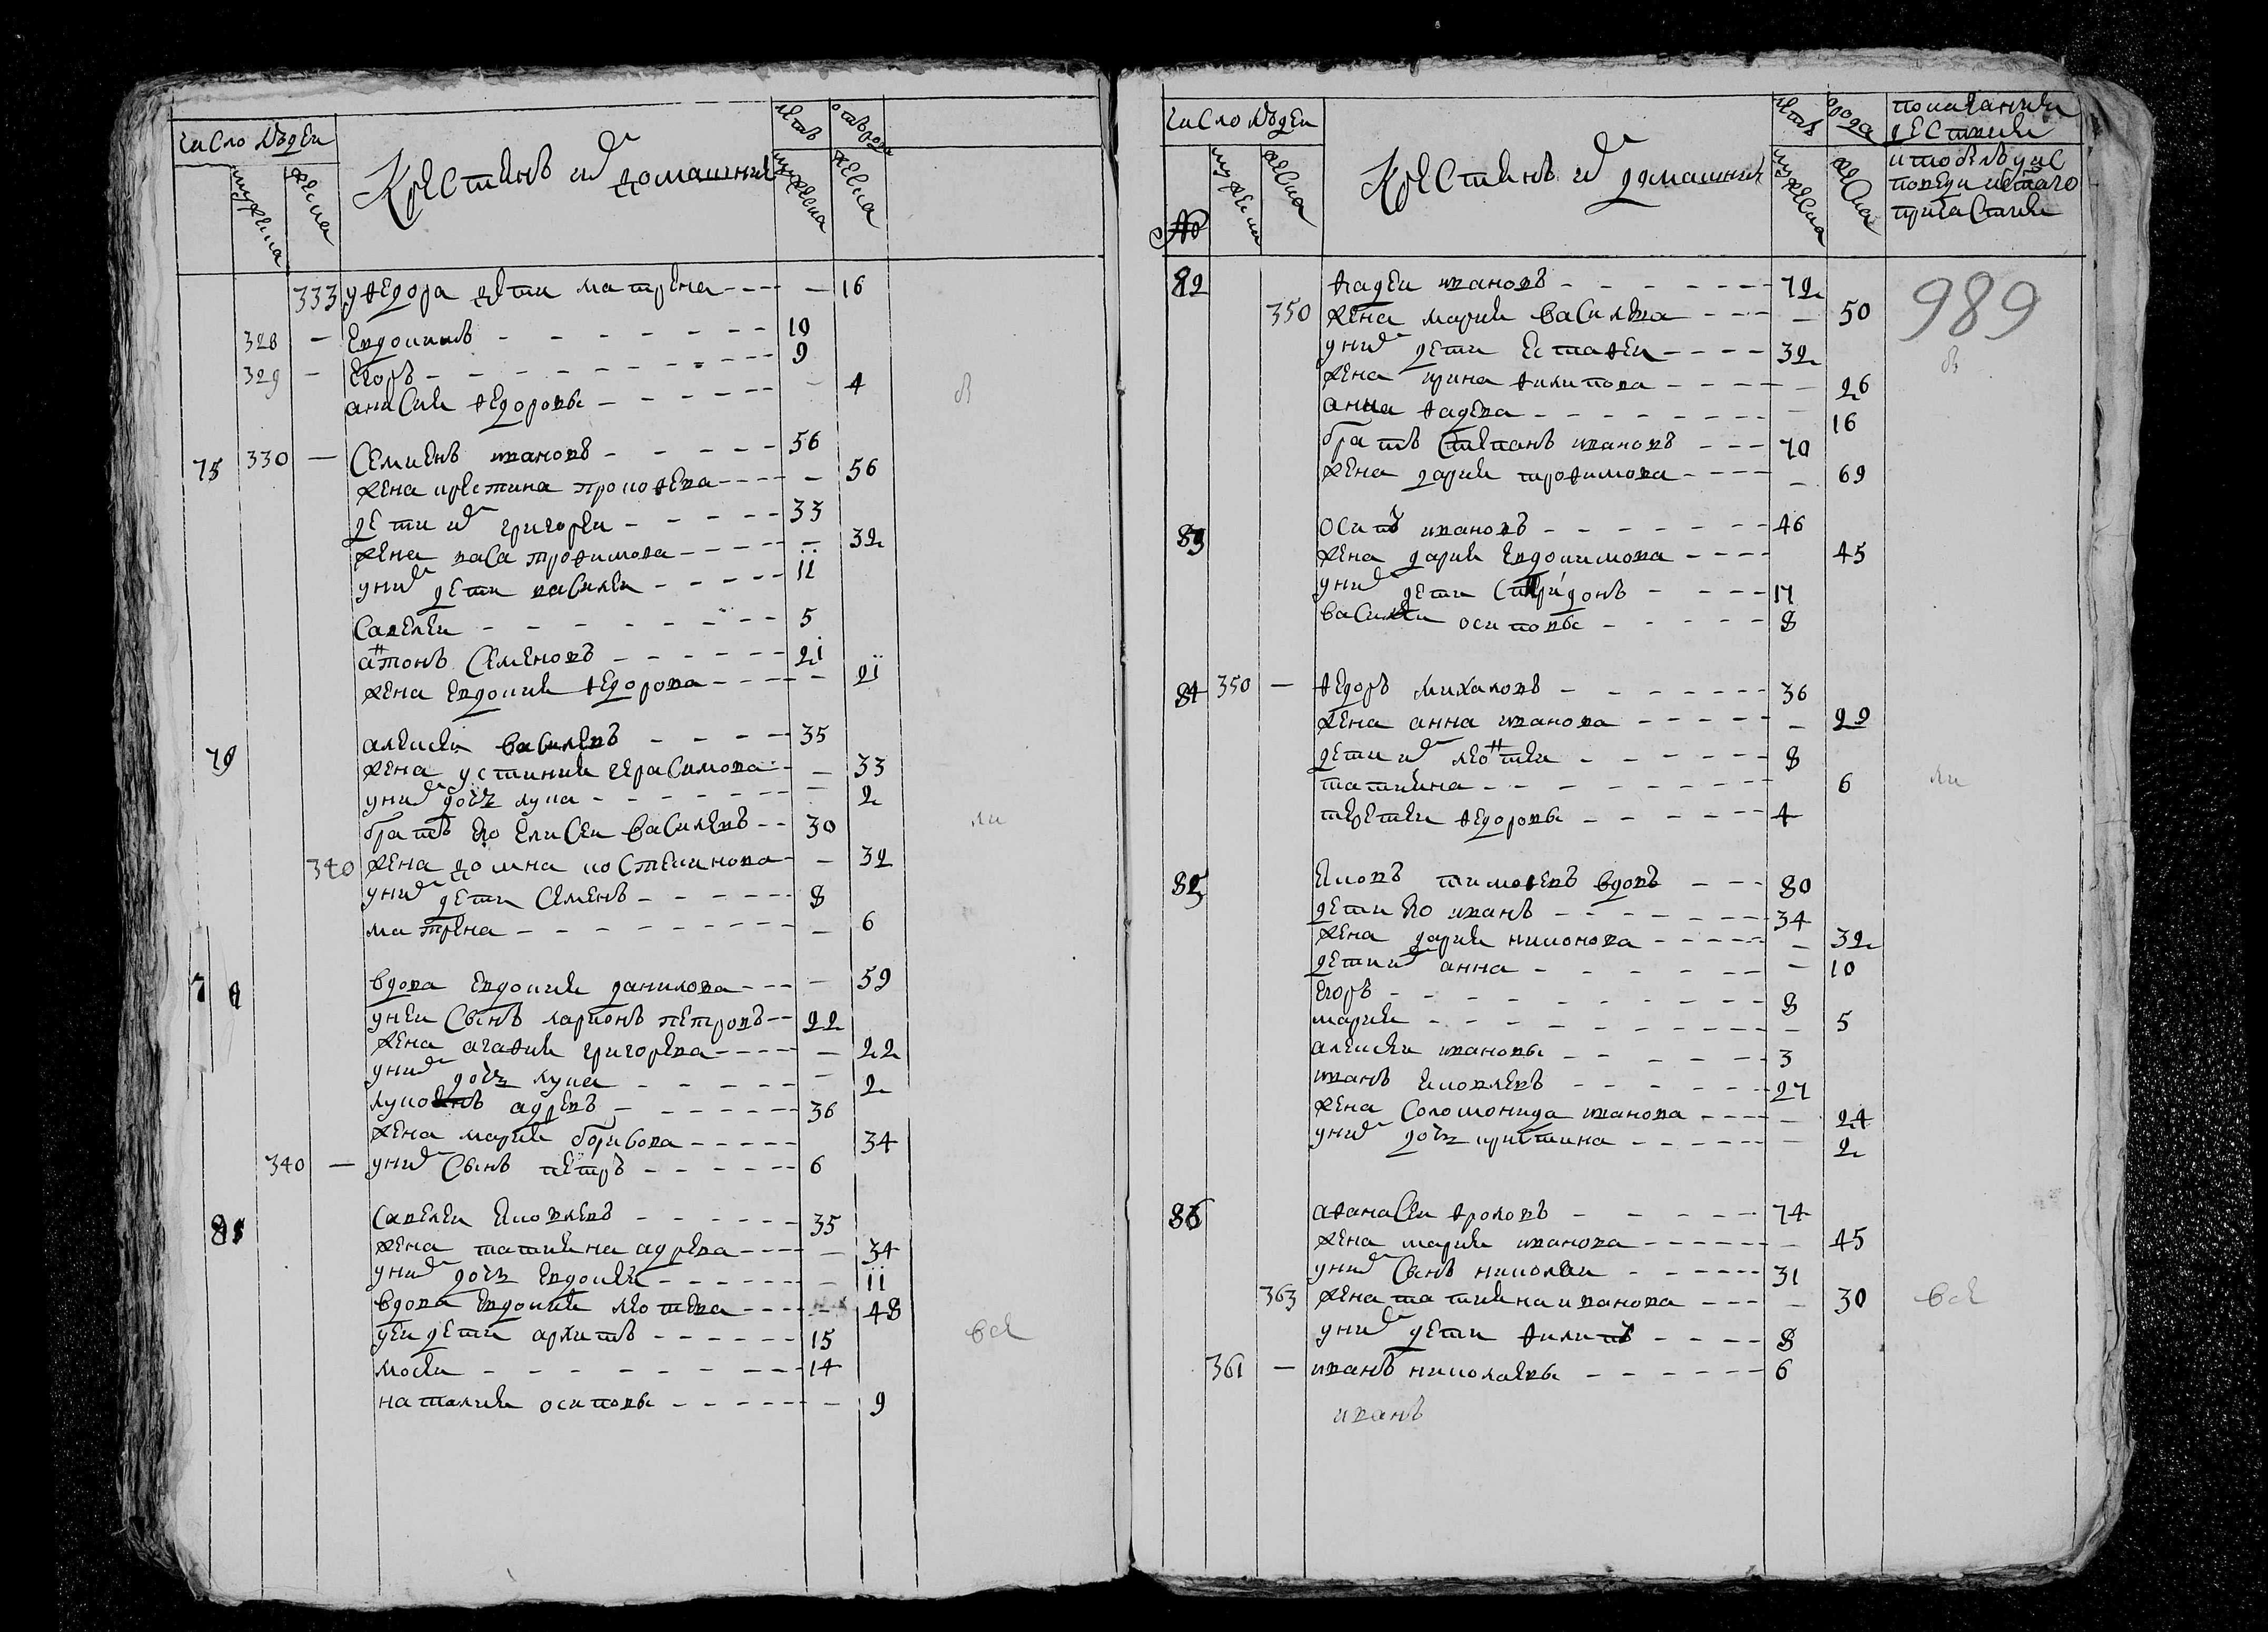 число людеи
мужеска
женска
Крестянъ их домашних
летъ
отъ рода
мужеска
женска
333 у Федора дети матрена - - - - — 16
328 — Евдокимъ - - - - - - - 19
329 — Егоръ - - - - - - - - 9
анисия Федоровы - - - - - - 4
75 330 — Семионъ ивановъ - - - - - 56
жена христина прокофева - - - - — 56
дети их григореи - - - - - 33
жена васа трофимова - - - - - — 32
у них дети василеи - - - - - 11
савелеи - - - - - - - - 5
антонъ Семеновъ - - - - - - 21
жена Евдокия Федорова - - - - — 21
79 алексеи василевъ - - - - 35
жена устиния герасимова - - — 33
у них дочь лукия - - - - - - — 2
братъ Ево Елисеи василевъ - - 30
340 жена домна костентинова - — 32
у них дети Семенъ - - - - - - 8
матрена - - - - - - - - - — 6
вдова Евдокия данилова - - - — 59
у неи сынъ ларионъ петровъ - - 22
жена агафия григорева - - - - — 22
у них дочь лукия - - - - - — 2
адревъ - - - - - - - 36
жена мария борисова - - - - - 34
340 — у них сынъ петръ - - - - - - 6
81 савелеи Яковлевъ - - - - - - 35
жена татияна адрева - - - - — 34
у них дочь Евдокия - - - - - - — 11
вдова Евдокия леотева - - - - — 48
у неи дети архипъ - - - - - - 15
мосеи - - - - - - - - - 14
наталия осиповы - - - - - - — 9
ли
всѣ
число людеи
№
мужеска
женска
Крестянъ их домашних
летъ
рода
мужеска
женска
989
82 Фадеи ивановъ - - - - - - - 72
350 жена мария василева - - - - — 50
у них дети Естафеи - - - - 32
жена ирина Филипова - - - - — 26
анна Фадева - - - - - - - - — 16
братъ Степанъ ивановъ - - - 70
жена дария трофимова - - - - — 69
83 осипъ ивановъ - - - - - - - 46
жена дария Евдокимова - - - - 45
у них дети Спиридонъ - - - - 17
василеи осиповы - - - - - 8
84 350 — Федоръ михаловъ - - - - - - 36
жена анна иванова - - - - - — 29
дети их леонтеи - - - - - - 8
татияна - - - - - - - - - 6
терентеи Федоровы - - - - - - 4
85 Яковъ тимофевъ вдовъ - - - 80
дети Ево иванъ - - - - - - - 34
жена дария никонова - - - - - — 32
дети их анна - - - - - - — 10
Егоръ - - - - - - - - - 8
мария - - - - - - - - - — 5
алексеи ивановы - - - - - - 3
иванъ Яковлевъ - - - - - - 27
жена Соломонида иванова - - - - — 24
у них дочь христина - - - - - - — 2
86 афанасеи Фроловъ - - - - - 74
жена мария иванова - - - - - - — 45
у них сынъ николаи - - - - - - 31
363 жена татияна иванова - - - — 30
у них дети Филипъ - - - - 8
361 — иванъ николаевы - - - - - - 6
иванъ
ли
всѣ